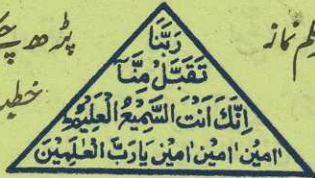 علم نماز
پڑھ چکے
خطیب
رَبَّنَا
تَقَبَّلْ مِنَّا
اِنَّكَ اَنْتَ السَّمِيْعُ الْعَلِيْمُ
اٰمِيْن اٰمِيْن اٰمِيْن يَارَبَّ الْعٰلَمِيْنَ